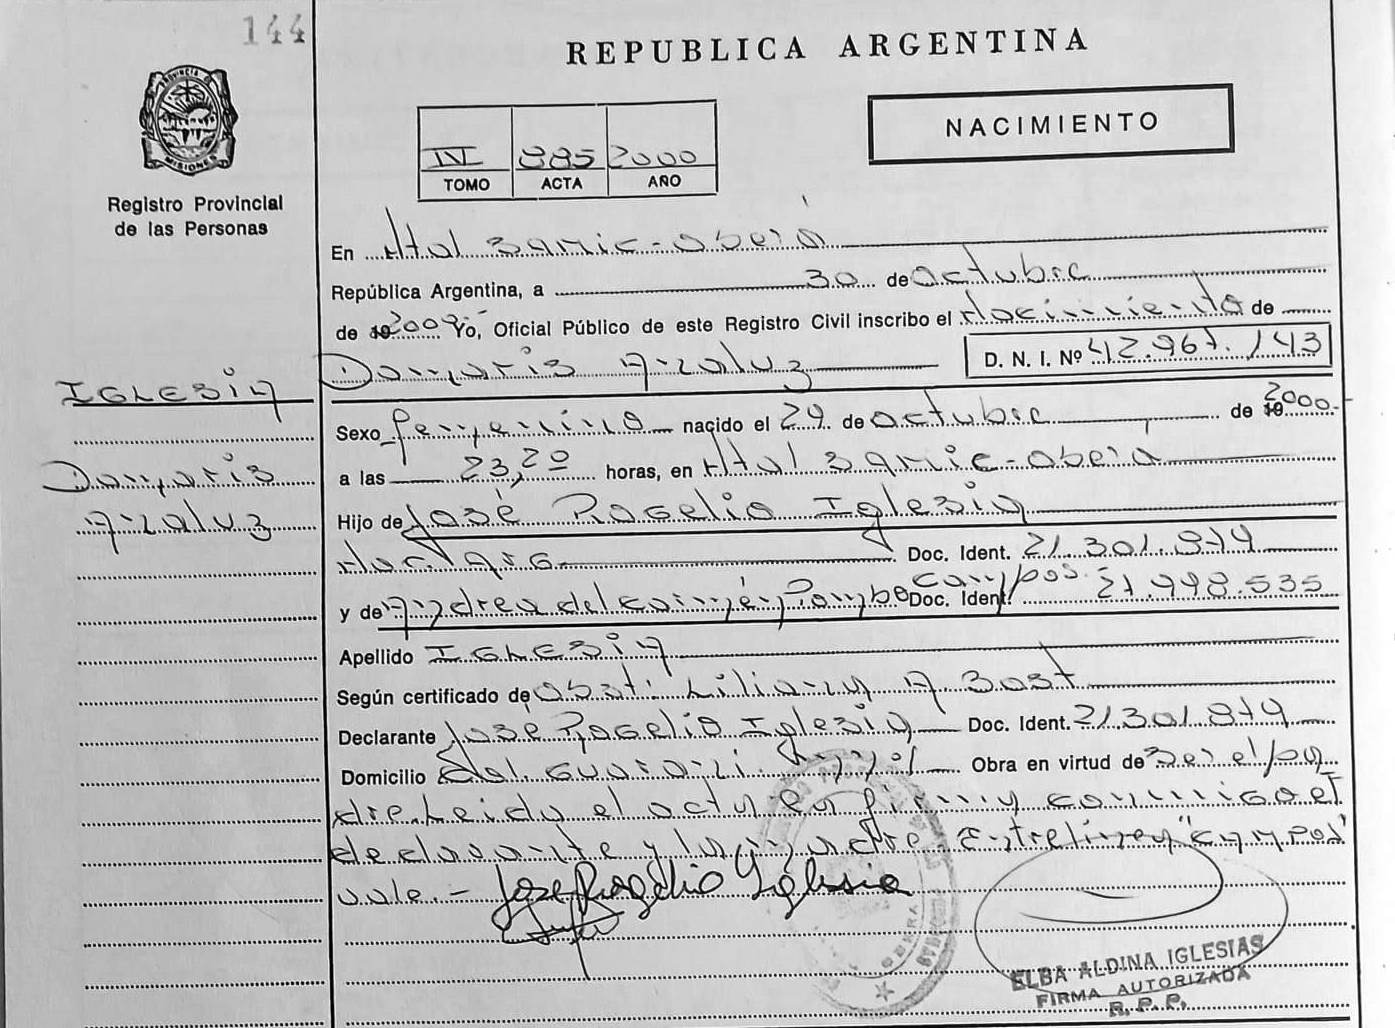 144
REPUBLICA ARGENTINA
NACIMIENTO
IV 885 2000
TOMO ACTA AÑO
MISIONES
Registro Provincial
de las Personas
En Htal Samic - Oberá
República Argentina, a 30 de Octubre
de 19 2000 Yo, Oficial Público de este Registro Civil inscribo el Nacimiento de
Damaris Analuz D. N. I. Nº 42.967.143
IGLESIA
Damaris
Analuz
Sexo femenino nacido el 29 de octubre de 19 2000.-
a las 23,20 horas, en Htal Samic - Oberá
Hijo de José Rogelio Iglesia
Doc. Ident. 21.301.874
y de Andrea del Carmen Pombo Campos Doc. Ident. 21.998.535
Apellido IGLESIA
Según certificado de Obst. Liliana A Bast
Declarante José Rogelio Iglesia Doc. Ident. 21.301.874
Domicilio Col. Guaraní Obra en virtud de ser el pa
dre. Leida el acta la firma conmigo el
declarante y la madre. Entrelinea "Campos"
vale. - Jose Rogelio Iglesia
ELBA ALDINA IGLESIAS
FIRMA AUTORIZADA
R. P. P.